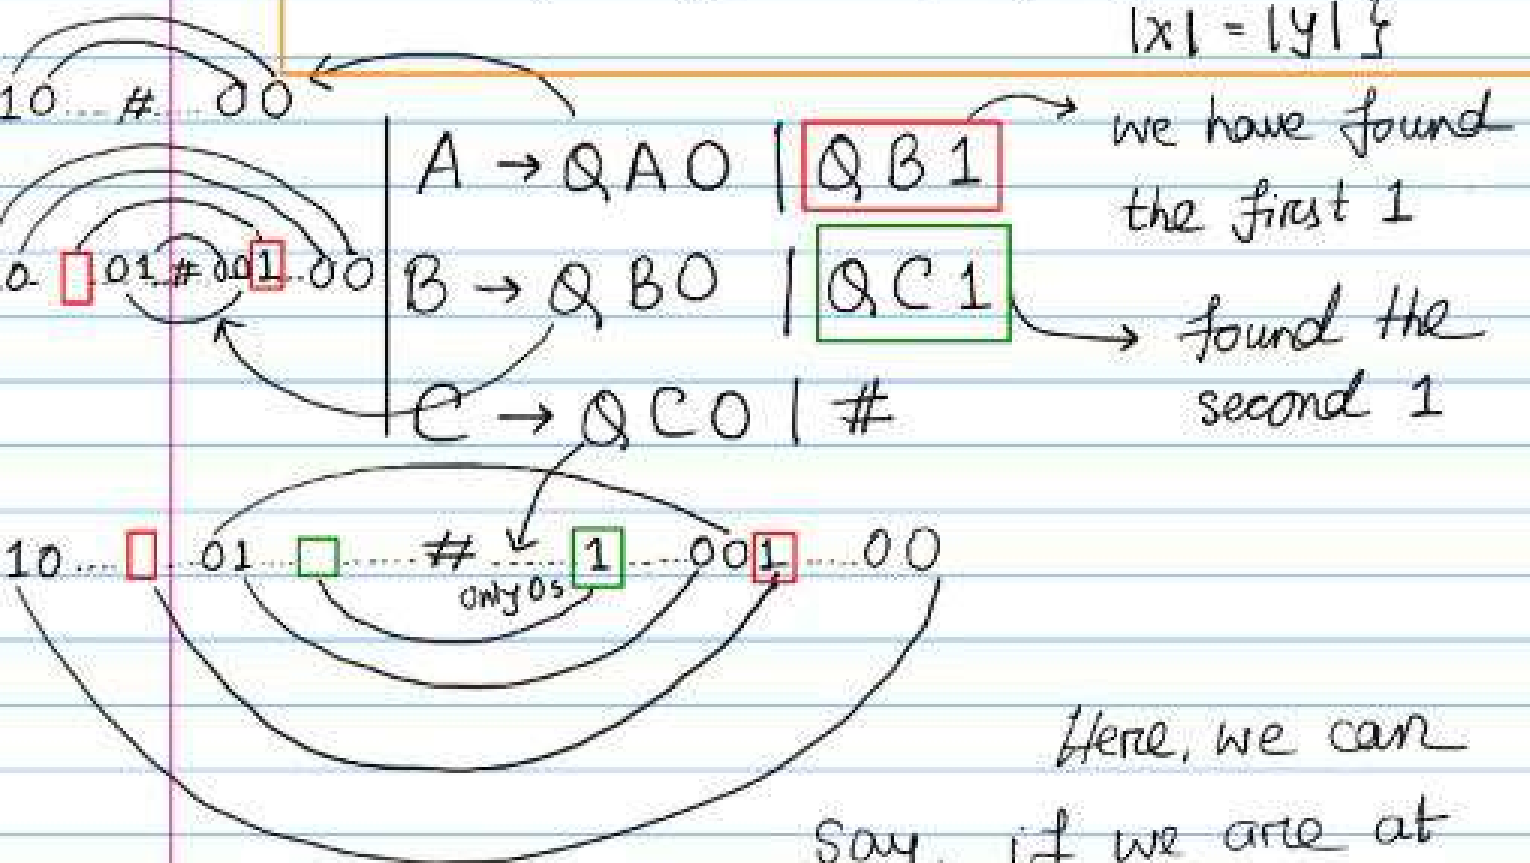 |x| = |y| }
10 .... # .... 00
A → QA0 | QB1
we have found
the first 1
0. 01 # 001..00
B → QB0 | QC1
found the
second 1
C → QC0 | #
10 .... 01 .... # .... 1 .... 001 .... 00
only 0s
Here, we can
Say, if we are at